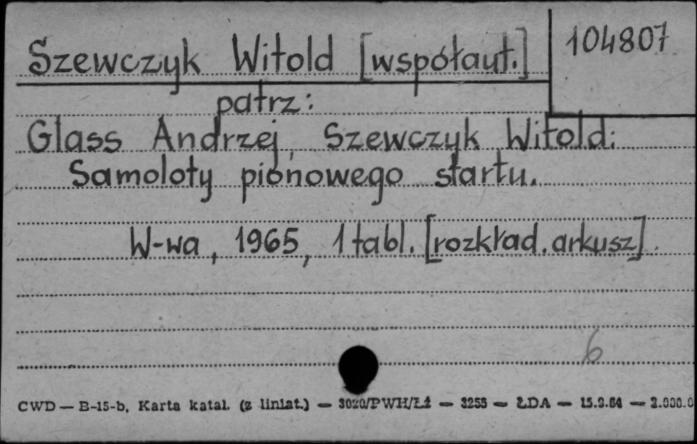 Szewczyk Witold [współaut.]
104807
patrz:
Glass Andrzej, Szewczyk Witold:
Samoloty pionowego startu.
W-wa, 1965, 1 tabl. [rozkład. arkusz].
6
CWD — B-15-b, Karta katal. (z liniat.) — 3020/PWH/Ł1 — 3255 — ŁDA — 15.9.64 — 2.000.0